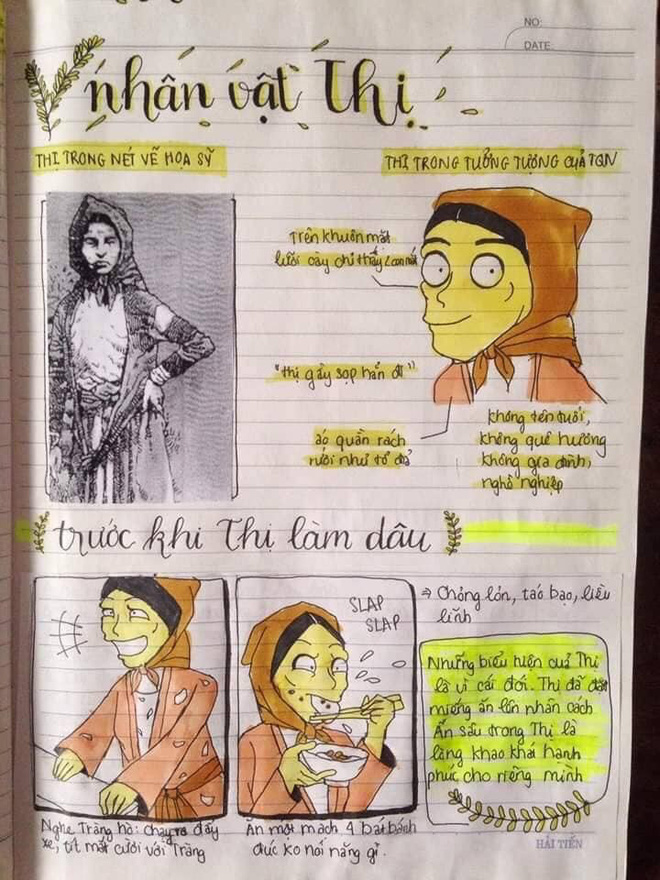 NO:
DATE
nhân vật Thị
THỊ TRONG NÉT VẼ HỌA SỸ
THỊ TRONG TƯỞNG TƯỢNG CỦA TQN
Trên khuôn mặt
lưỡi cày chỉ thấy 2 con mắt
"thị gầy sọp hẳn đi"
áo quần rách
rưới như tổ đỉa
không tên tuổi,
không quê hương
không gia đình,
nghề nghiệp
trước khi Thị làm dâu
SLAP
SLAP
⇒ Chỏng lỏn, táo bạo, liều
lĩnh
Những biểu hiện của Thị
là vì cái đói. Thị đã đặt
miếng ăn lên nhân cách
Ẩn sâu trong Thị là
lòng khao khát hạnh
phúc cho riêng mình
Nghe Tràng hò: chạy ra đẩy
xe, tít mắt cười với Tràng
Ăn một mạch 4 bát bánh
đúc ko nói năng gì.
HẢI TIẾN